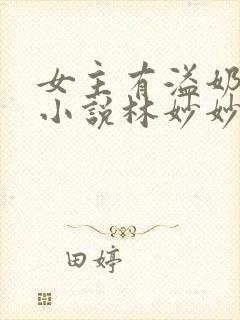 女主有溢奶
小说林妙妙
田婷